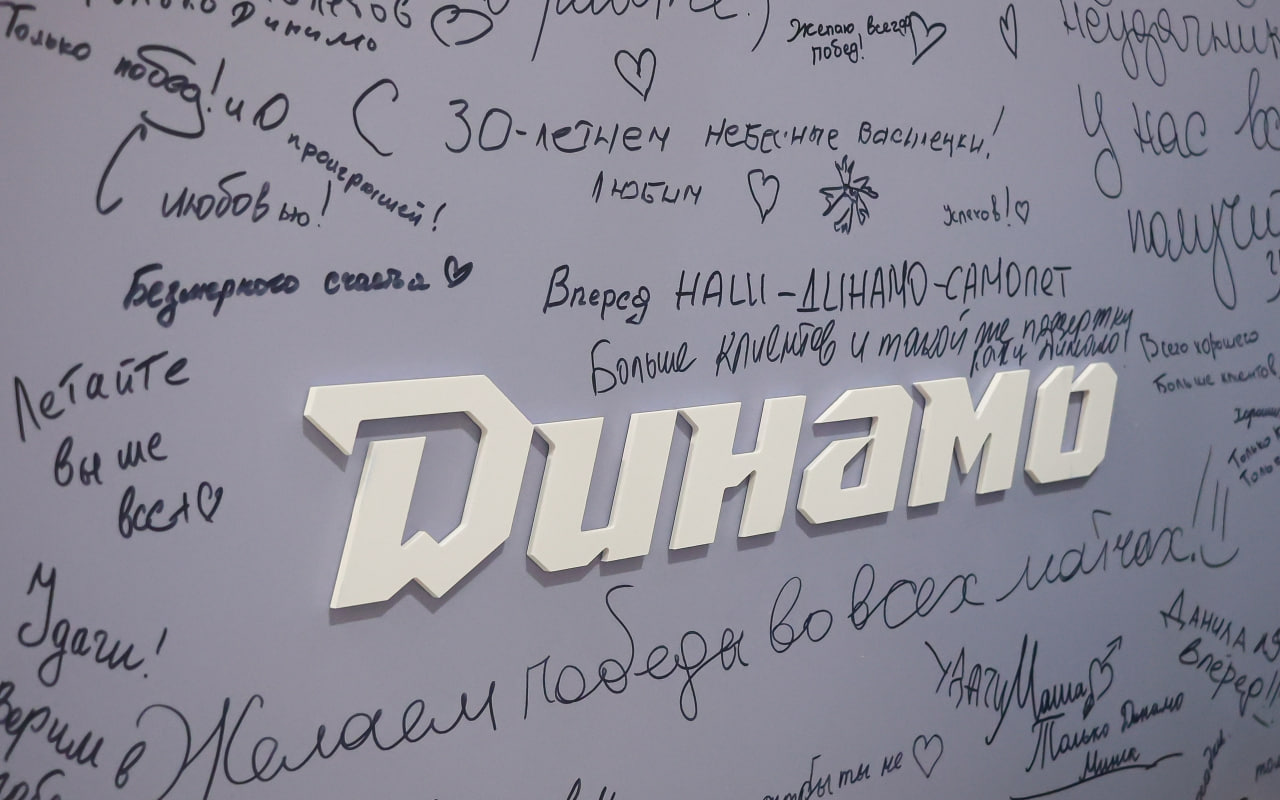 Динамо
Желаю всегда
побед!
Только побед! и 0
проигрышей!
С 30-летием небесные василечки!
Любим
с любовью!
Успехов!
у нас
Безмерного счастья
Вперед НАШ-ДИНАМО-САМОЛЕТ
Больше клиентов и такой же
Всего хорошего
Больше клиентов
Летайте
выше
всех
Динамо
Желаем победы во всех матчах!
Удачи!
Верим в
Данила
вперед!!
Удачи Маша
Только Динамо
Минск
бы ты не